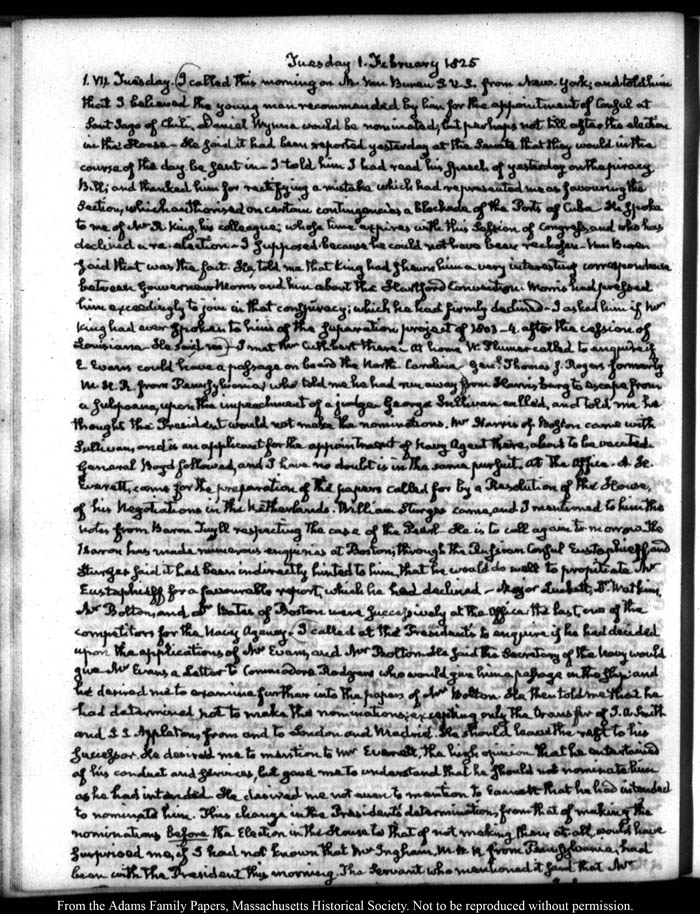 Tuesday 1. February 1825
1. VII. Tuesday. I called this morning on Mr Van Buren S.U.S. from New-York; and told him
that I believed the young man recommended by him for the appointment of Consul at
Sant Iago of Chili, Daniel Wynne would be nominated; but perhaps not till after the election
in the House— He said it had been reported yesterday at the Senate that they would in the
course of the day be sent in— I told him I had read his Speech of yesterday on the piracy
Bill; and thanked him for rectifying a mistake which had represented me as favouring the
Section, which authorised on certain contingencies a blockade of the Ports of Cuba. He spoke
to me of Mr R. King, his colleague; whose time expires with this Session of Congress, and who has
declined a re-election— I supposed because he could not have been rechosen— Van Buren
said that was the fact. He told me that King had shewn him a very interesting correspondence
between Gouverneur Morris and him about the Hartford Convention. Morris had pressed
him exceedingly to join in that conspiracy; which he had firmly declined— I asked him if Mr
King had ever spoken to him of the Separation project of 1803-4 after the cession of
Louisiana— He said no— I met Mr Cuthbert there— at home W. Plumer called to enquire if
E. Evans could have a passage on board the North Carolina— Genl. Thomas J. Rogers formerly
M.H.R. from Pennsylvania, who told me he had run away from Harrisburg to escape from
a subpoena, upon the impeachment of a judge. George Sullivan called, and told me he
thought the President would not make the nominations. Mr Harris of Boston came with
Sullivan, and is an applicant for the appointment of Navy Agent there, about to be vacated.
General Boyd followed, and I have no doubt is in the same pursuit. At the Office. A. H.
Everett, came for the preparation of the papers called for by a Resolution of the House,
of his Negotiations in the Netherlands. William Sturges came, and I mentioned to him the
Notes from Baron Tuyll respecting the case of the Pearl— He is to call again to-morrow. The
Baron has made numerous enquiries at Boston; through the Russian Consul Eustaphieff, and
Sturges said it had been indirectly hinted to him, that he would do well to propitiate Mr
Eustaphieff for a favourable report, which he had declined— Major Luckett, Dr Watkins,
Mr Bolton, and Dr Bates of Boston were successively at the Office. The last, one of the
competitors for the Navy Agency. I called at the President's to enquire if he had decided
upon the applications of Mr Evans, and Mr Bolton. He said the Secretary of the Navy would
give Mr Evans a Letter to Commodore Rodgers who would give him a passage in the Ship; and
he desired me to examine further into the papers of Mr Bolton. He then told me that he
had determined not to make the nominations; excepting only the transfer of J. A. Smith
and J. S. Appleton, from and to London and Madrid. He should leave the rest to his
Successor. He desired me to mention to Mr Everett, the high opinion that he entertained
of his conduct and services, but gave me to understand that he should not nominate him
as he had intended. He desired me not even to mention to Everett that he had intended
to nominate him. This change in the President's determination, from that of making the
nominations before the Election in the House to that of not making them at all, would have
surprised me, if I had not known that Mr Ingham, M.H.R. from Pennsylvania, had
been with the President this morning. The Servant who mentioned it said that Mr
From the Adams Family Papers, Massachusetts Historical Society. Not to be reproduced without permission.